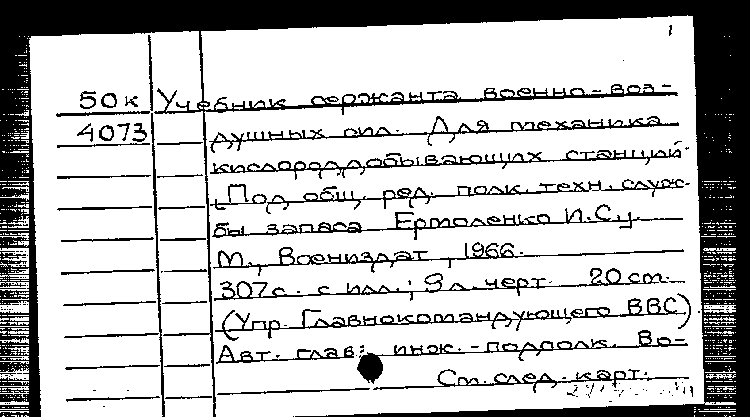 1
50к Учебник сержанта военно-воз-
4073 душных сил. Для механика
кислорододобывающих станций.
Под общ. ред. полк. техн. служ-
бы запаса Ермоленко И.С.
М., Воениздат, 1966.
307с. с илл.; 9 л. черт. 20 см.
(Упр. Главнокомандующего ВВС).
Авт. глав: инж.-подполк. Во-
См. след. карт.